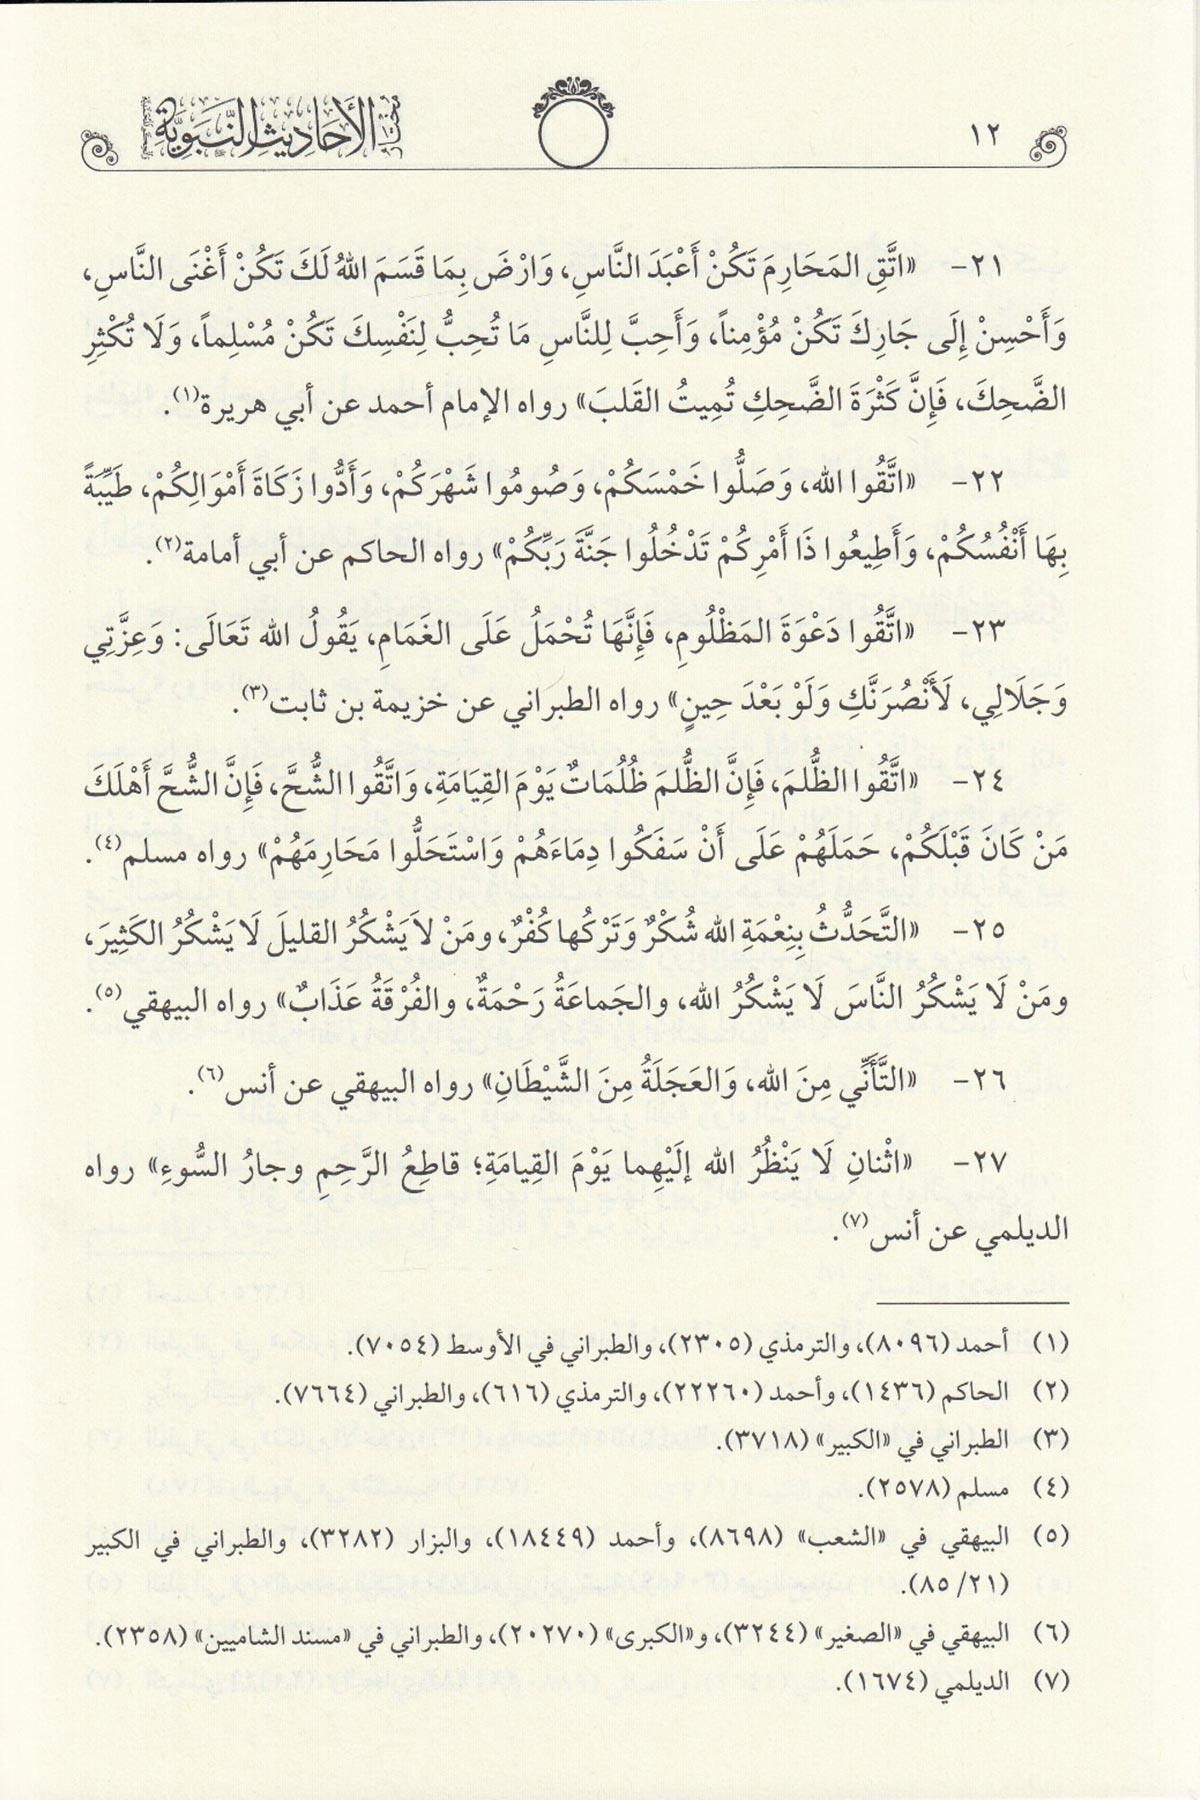 ١٢
مختار الأَحَاديثِ النَّبَويَّة
٢١- «اتَّقِ المَحَارِمَ تَكُنْ أَعْبَدَ النَّاسِ، وَارْضَ بِمَا قَسَمَ اللهُ لَكَ تَكُنْ أَغْنَى النَّاسِ،
وَأَحْسِنْ إِلَى جَارِكَ تَكُنْ مُؤْمِناً، وَأَحِبَّ لِلنَّاسِ مَا تُحِبُّ لِنَفْسِكَ تَكُنْ مُسْلِماً، وَلَا تُكْثِرِ
الضَّحِكَ، فَإِنَّ كَثْرَةَ الضَّحِكِ تُمِيتُ القَلبَ» رواه الإمام أحمد عن أبي هريرة(١).
٢٢- «اتَّقُوا الله، وَصَلُّوا خَمْسَكُمْ، وَصُومُوا شَهْرَكُمْ، وَأَدُّوا زَكَاةَ أَمْوَالِكُمْ، طَيِّبَةً
بِهَا أَنْفُسُكُمْ، وَأَطِيعُوا ذَا أَمْرِكُمْ تَدْخُلُوا جَنَّةَ رَبِّكُمْ» رواه الحاكم عن أبي أمامة(٢).
٢٣- «اتَّقُوا دَعْوَةَ المَظْلُومِ، فَإِنَّهَا تُحْمَلُ عَلَى الغَمَامِ، يَقُولُ الله تَعَالَى: وَعِزَّتِي
وَجَلَالِي، لَأَنْصُرَنَّكِ وَلَوْ بَعْدَ حِينٍ» رواه الطبراني عن خزيمة بن ثابت(٣).
٢٤- «اتَّقُوا الظُّلمَ، فَإِنَّ الظُّلمَ ظُلُمَاتٌ يَوْمَ القِيَامَةِ، وَاتَّقُوا الشُّحَّ، فَإِنَّ الشُّحَّ أَهْلَكَ
مَنْ كَانَ قَبْلَكُمْ، حَمَلَهُمْ عَلَى أَنْ سَفَكُوا دِمَاءَهُمْ وَاسْتَحَلُّوا مَحَارِمَهُمْ» رواه مسلم(٤).
٢٥- «التَّحَدُّثُ بِنِعْمَةِ الله شُكْرٌ وَتَرْكُها كُفْرٌ، ومَنْ لاَ يَشْكُرُ القليلَ لَا يَشْكُرُ الكَثِيرَ،
ومَنْ لَا يَشْكُرُ النَّاسَ لَا يَشْكُرُ الله، والجَماعَةُ رَحْمَةٌ، والفُرْقَةُ عَذَابٌ» رواه البيهقي(٥).
٢٦- «التَّأَنِّي مِنَ الله، وَالعَجَلَةُ مِنَ الشَّيْطَانِ» رواه البيهقي عن أنس(٦).
٢٧- «اثْنانِ لَا يَنْظُرُ الله إلَيْهِما يَوْمَ القِيامَةِ؛ قاطِعُ الرَّحِمِ وجارُ السُّوءِ» رواه
الديلمي عن أنس(٧).
(١) أحمد (٨٠٩٦)، والترمذي (٢٣٠٥)، والطبراني في الأوسط (٧٠٥٤).
(٢) الحاكم (١٤٣٦)، وأحمد (٢٢٢٦٠)، والترمذي (٦١٦)، والطبراني (٧٦٦٤).
(٣) الطبراني في «الكبير» (٣٧١٨).
(٤) مسلم (٢٥٧٨).
(٥) البيهقي في «الشعب» (٨٦٩٨)، وأحمد (١٨٤٤٩)، والبزار (٣٢٨٢)، والطبراني في الكبير
(٢١/ ٨٥).
(٦) البيهقي في «الصغير» (٣٢٤٤)، و«الكبرى» (٢٠٢٧٠)، والطبراني في «مسند الشاميين» (٢٣٥٨).
(٧) الديلمي (١٦٧٤).